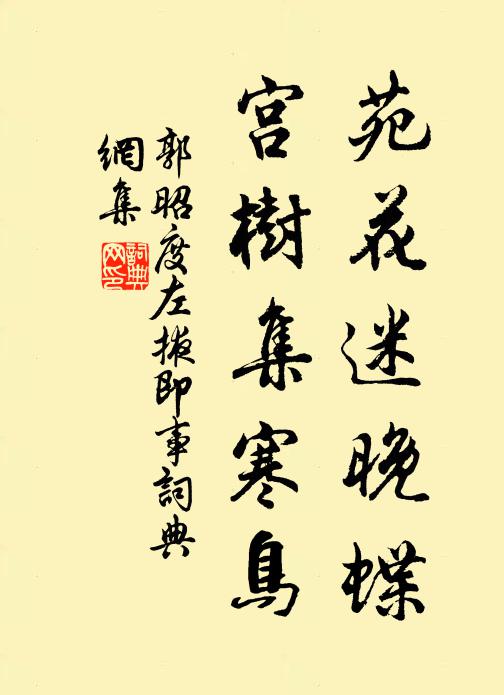 苑花迷晚蝶
宫樹集寒鳥
郭昭度左掖即事詞典
網集
詞典網印